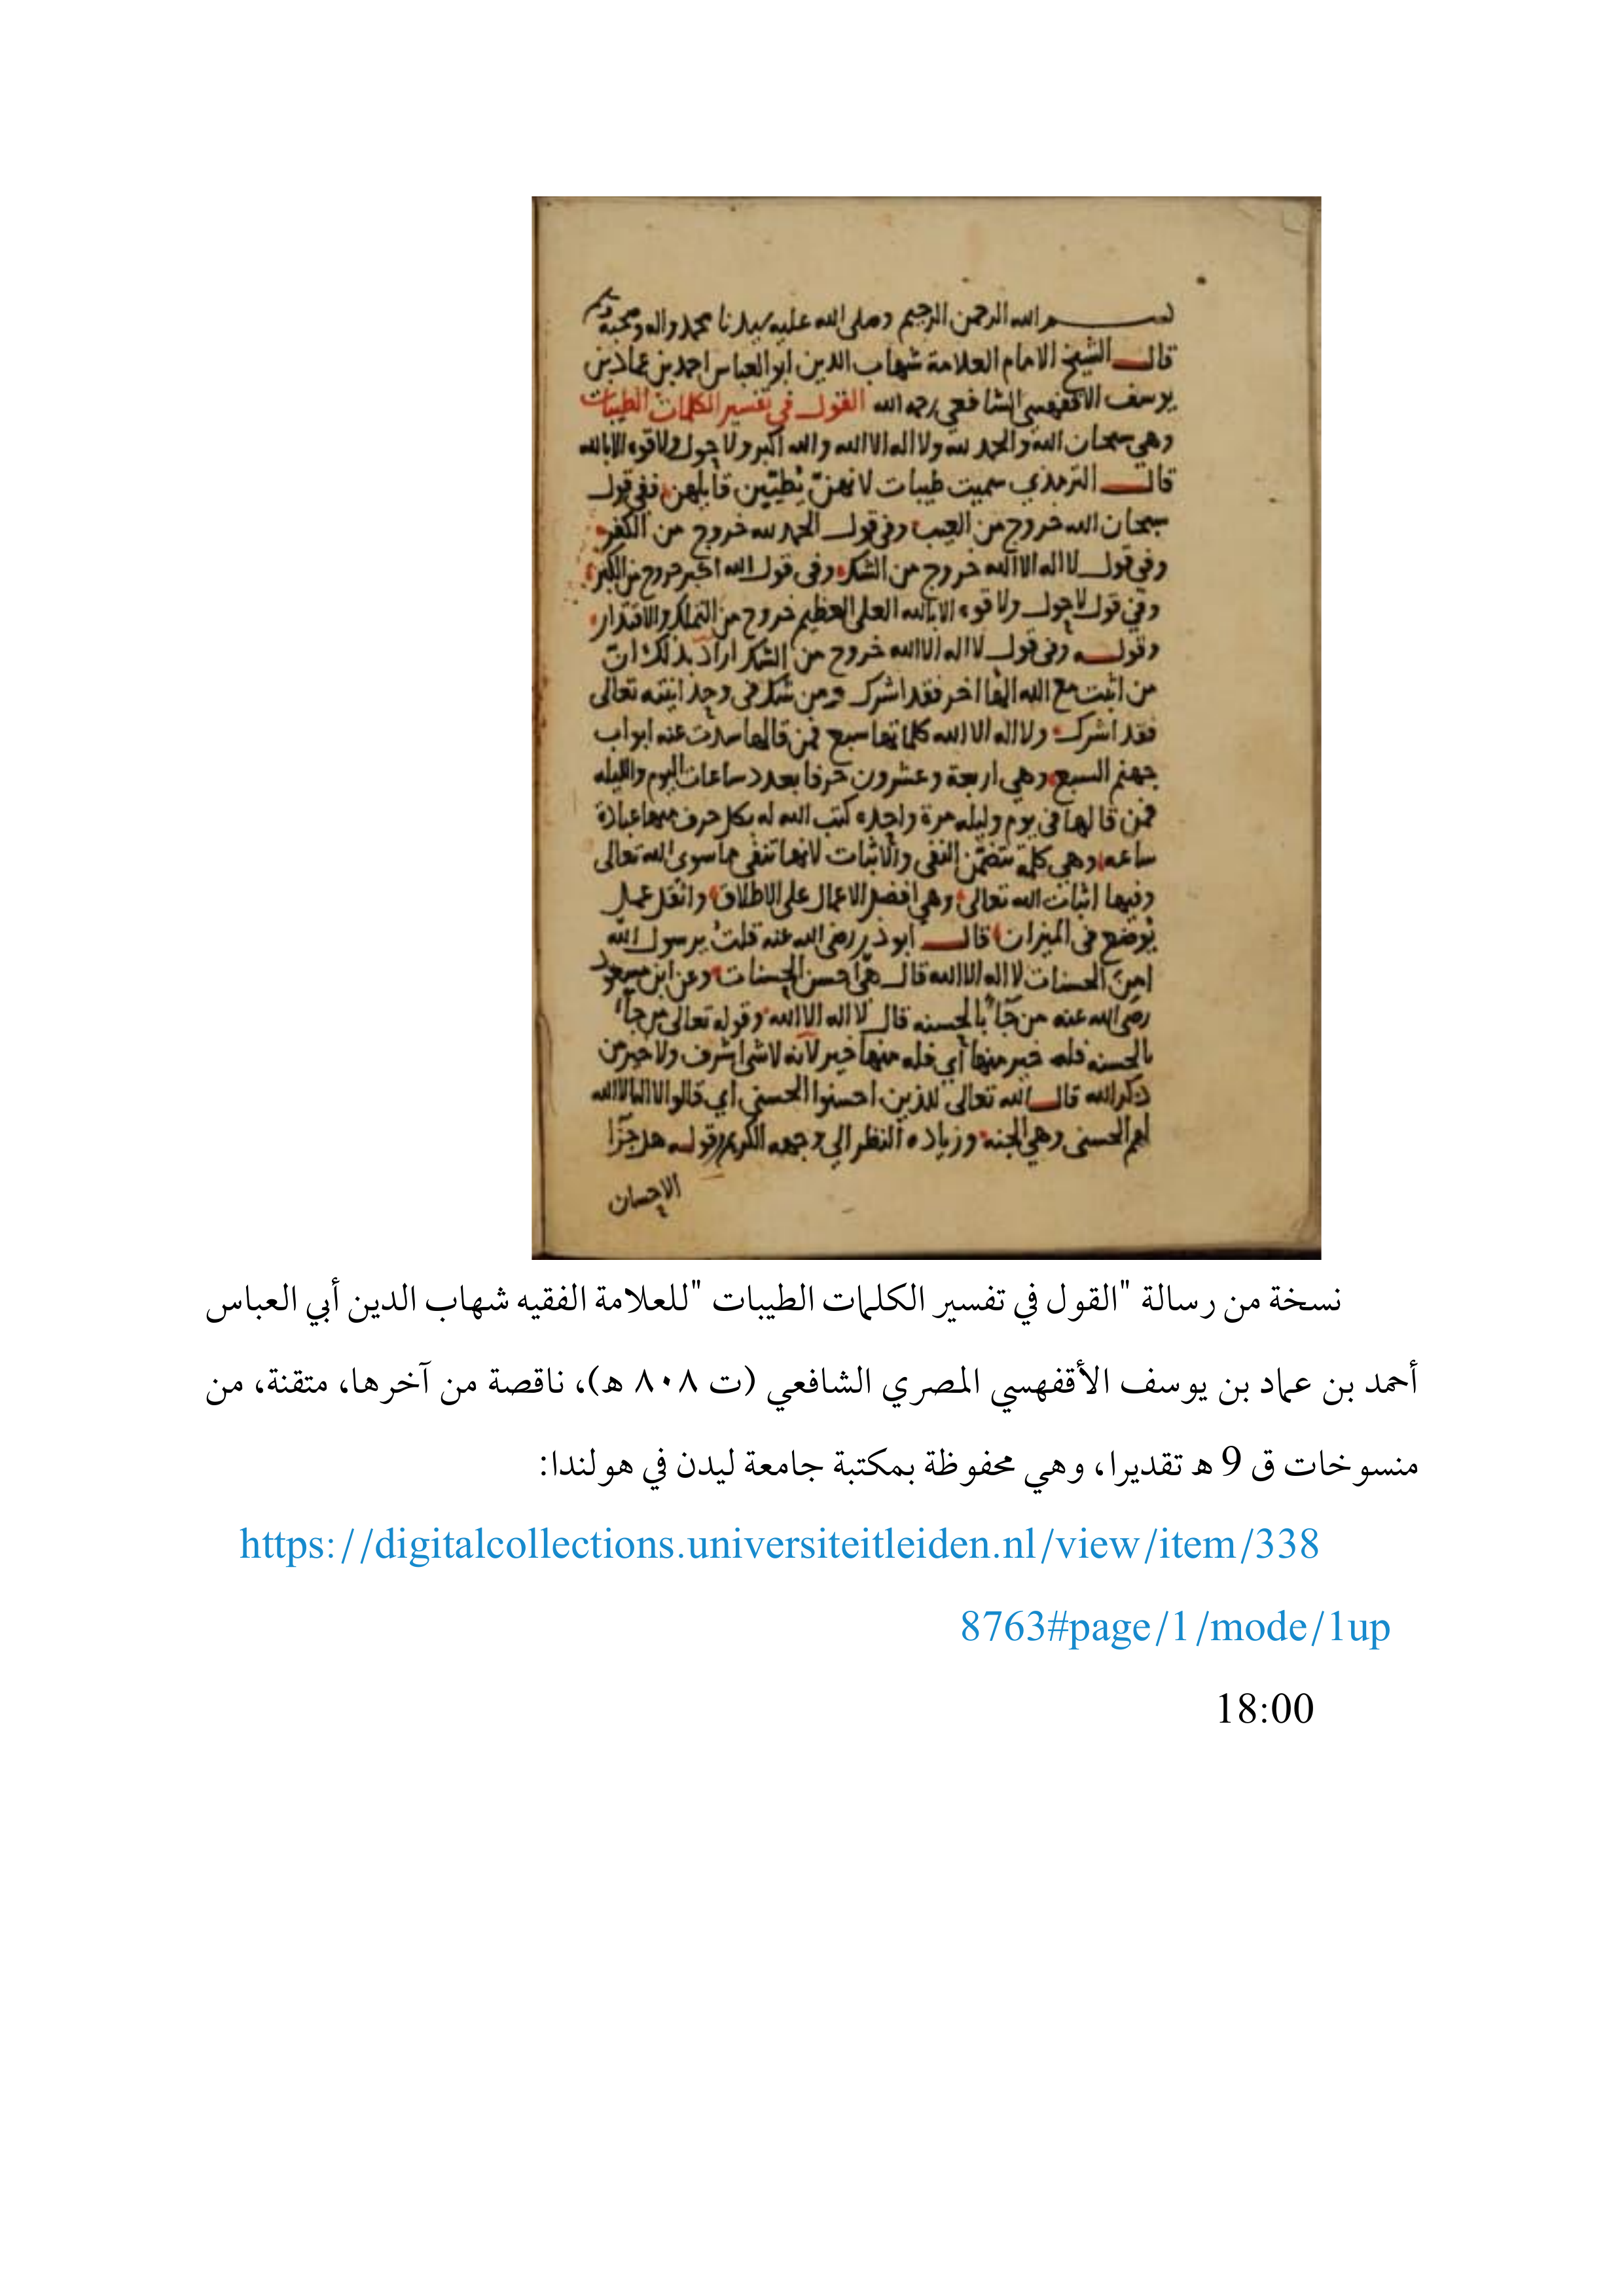 بسم الله الرحمن الرحيم وصلى الله عليه سيدنا محمد واله وصحبه وسلم
قال الشيخ الامام العلامة شهاب الدين ابو العباس احمد بن عماد بن
يوسف الاقفهسي الشافعي رحمه الله القول في تفسير الكلمات الطيبات
وهي سبحان الله والحمد لله ولا اله الا الله والله اكبر ولا حول ولا قوه الا بالله
قال الترمذي سميت طيبات لانهن يطيبن قايلهن ففي قول
سبحان الله خروج من العيب وفي قول الحمد لله خروج من الكفر
وفي قول لا اله الا الله خروج من الشك وفي قول الله اكبر خروج من الكبر
وفي قول لا حول ولا قوه الا بالله العلي العظيم خروج من التملك والاقتدار
وقوله وفي قول لا اله الا الله خروج من الشك اراد بذلك ان
من اثبت مع الله الها اخر فقد اشرك ومن شك في وحدانيته تعالى
فقد اشرك ولا اله الا الله كلماتها سبع فمن قالها سدت عنه ابواب
جهنم السبع وهي اربعة وعشرون حرفا بعدد ساعات اليوم والليله
فمن قالها في يوم وليله مرة واحده كتب الله له بكل حرف منها عبادة
ساعه وهي كلمة تتضمن النفي والاثبات لانها تنفي ما سوى الله تعالى
وفيها اثبات الله تعالى وهي افضل الاعمال على الاطلاق واثقل عمل
يوضع في الميزان قال ابو ذر رضي الله عنه قلت يرسول الله
امن الحسنات لا اله الا الله قال هي احسن الحسنات وعن ابن مسعود
رضي الله عنه من جآ بالحسنه قال لا اله الا الله وقوله تعالى من جآ
بالحسنه فله خير منها اي فله منها خير لانه لا شي اشرف ولا خير من
ذكر الله قال الله تعالى للذين احسنوا الحسنى اي قالوا لا اله الا الله
لهم الحسنى وهي الجنه وزياده النظر الى وجهه الكريم وقوله هل جزآ
الاحسان
نسخة من رسالة "القول في تفسير الكلمات الطيبات "للعلامة الفقيه شهاب الدين أبي العباس
أحمد بن عماد بن يوسف الأقفهسي المصري الشافعي (ت ٨٠٨ هـ)، ناقصة من آخرها، متقنة، من
منسوخات ق 9 هـ تقديرا، وهي محفوظة بمكتبة جامعة ليدن في هولندا:
https://digitalcollections.universiteitleiden.nl/view/item/338
8763#page/1/mode/1up
18:00